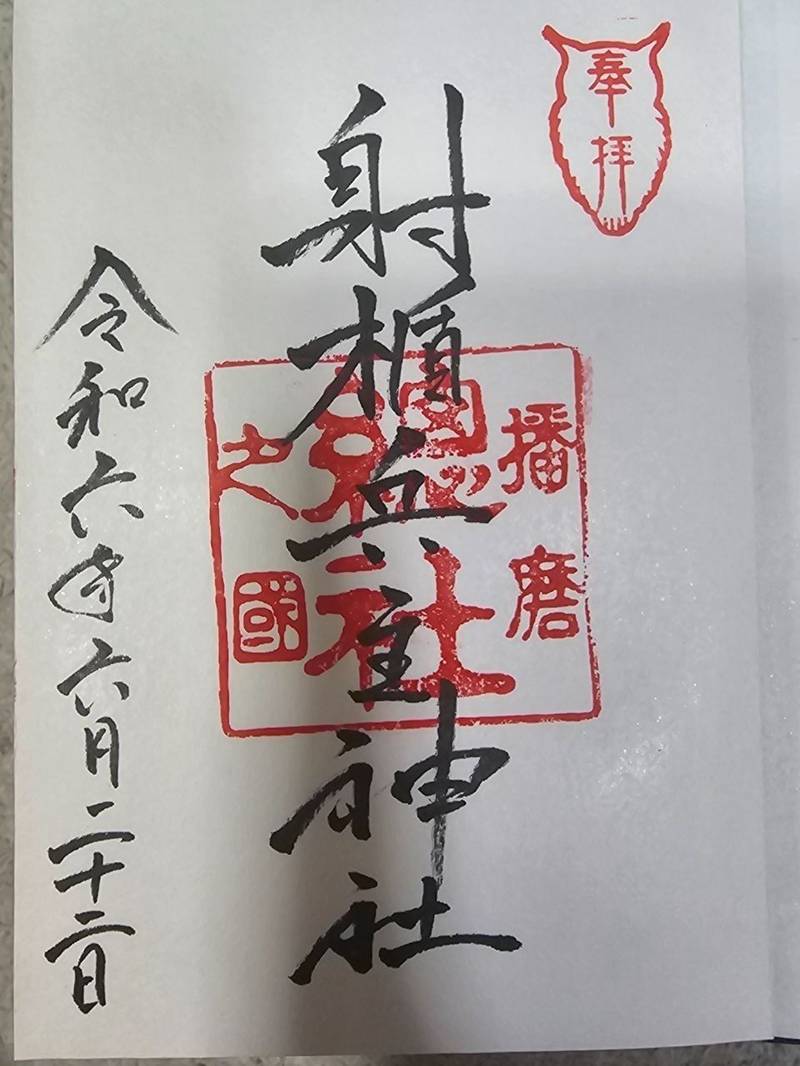 奉拝
射楯兵主神社
播磨
之國
總社
令和六年六月二十二日